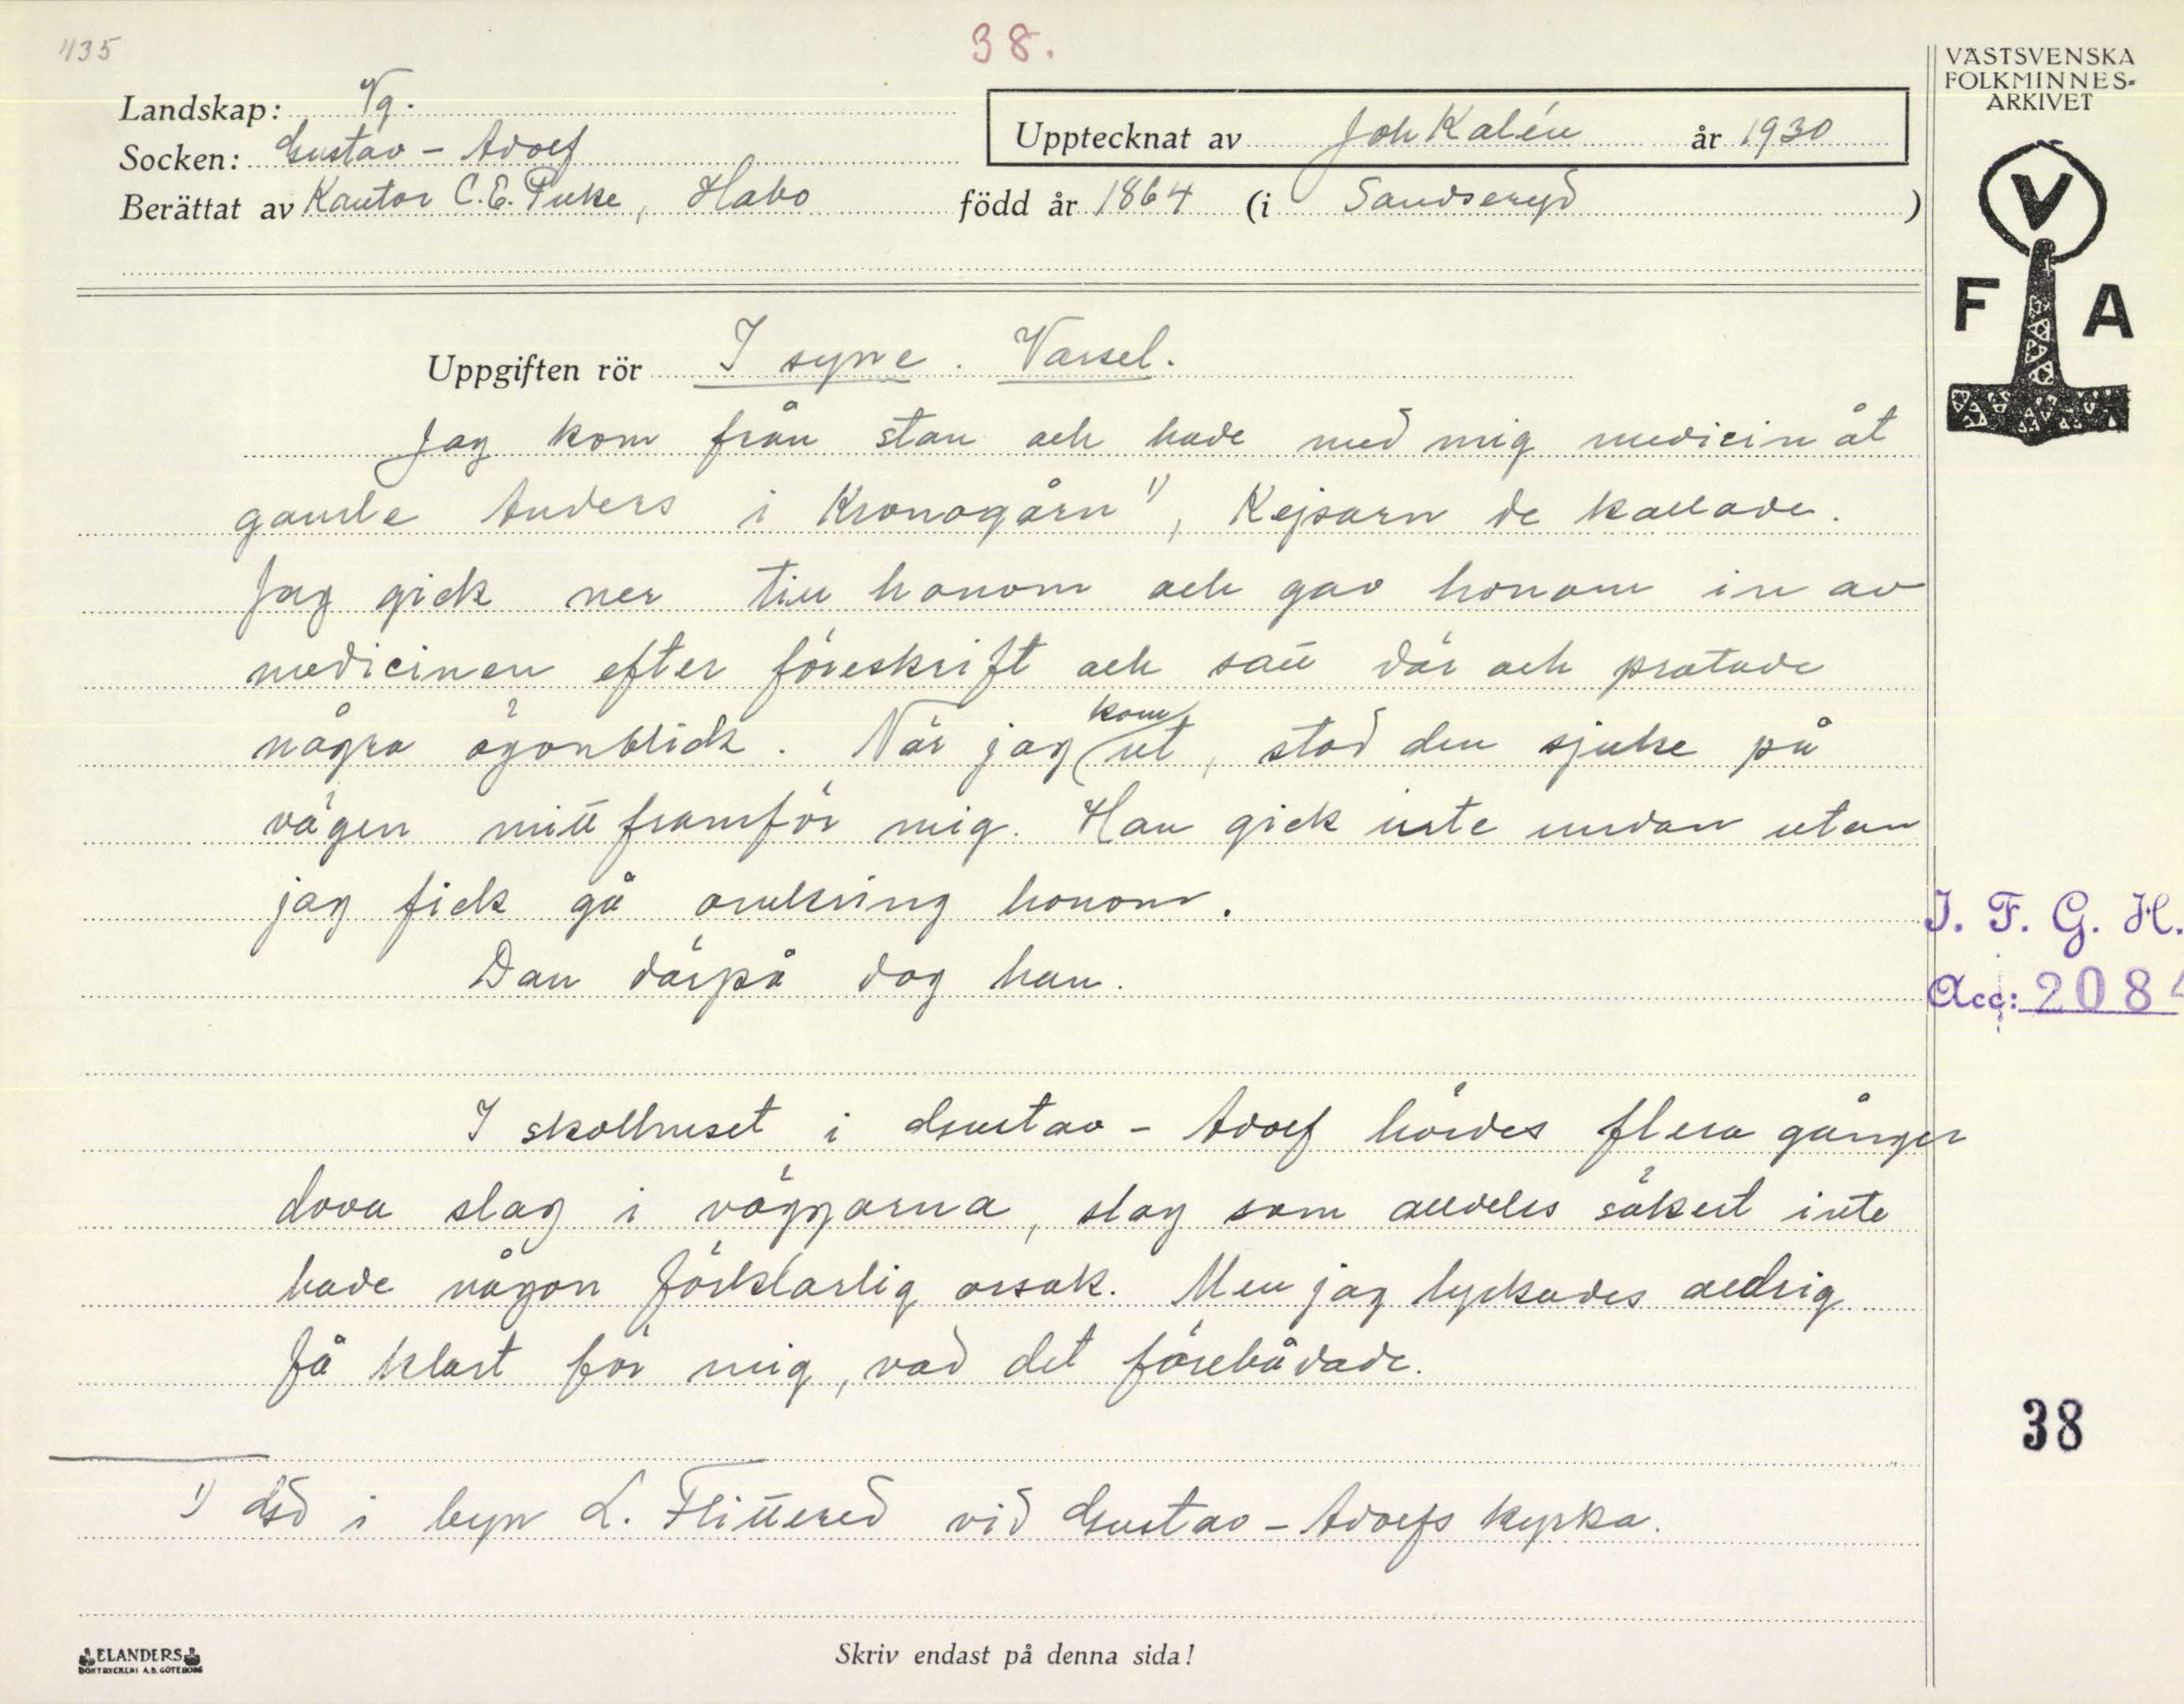 435
38.
VÄSTSVENSKA
FOLKMINNES-
ARKIVET
Landskap: Vg.
Socken: Gustav-Adolf
Upptecknat av Joh Kalén år 1930
Berättat av Kantor C. E. Puke, Habo född år 1864 (i Sandseryd)
V
F A
Uppgiften rör I syne. Varsel.
Jag kom från stan och hade med mig medicin åt
gamle Anders i Kronogårn 1), Kejsarn de kallade.
Jag gick ner till honom och gav honom in av
medicinen efter föreskrift och satt där och pratade
några ögonblick. När jag kom ut, stod den sjuke på
vägen mitt framför mig. Han gick inte undan utan
jag fick gå omkring honom.
Dan därpå dog han.
I. F. G. H.
Acc: 2084
I skolhuset i Gustav-Adolf hördes flera gånger
dova slag i väggarna, slag som alldeles säkert inte
hade någon förklarlig orsak. Men jag lyckades aldrig
få klart för mig, vad det förebådade.
38
1) Gd i byn L. Flittered vid Gustav-Adolfs kyrka.
ELANDERS
BOKTRYCKERI A.B. GÖTEBORG
Skriv endast på denna sida!